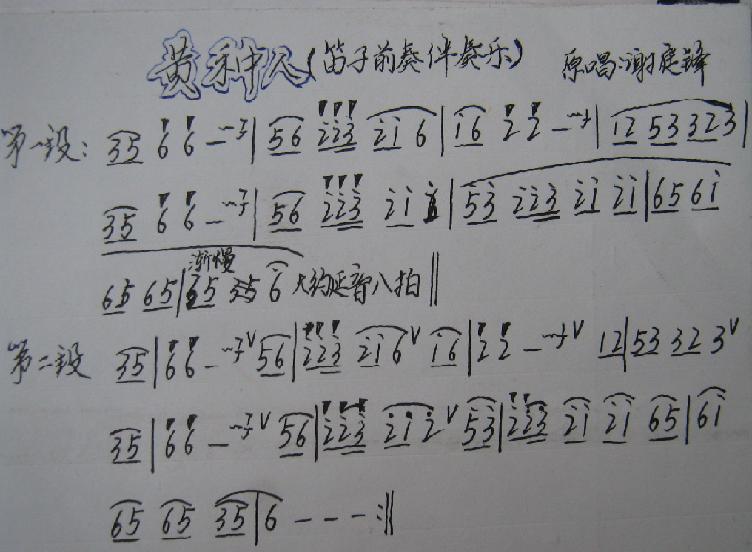 黄种人(笛子前奏伴奏乐) 原唱:谢庭锋
第一段: 35 66 — | 56 2̇2̇3̇ 2̇1̇6 | 1̇6 2̇2̇ — | 12 53 323 |
35 66 — | 56 2̇2̇3̇ 2̇1̇ | 5̇3̇ 2̇2̇3̇ 2̇1̇ 2̇1̇ | 65 61̇
65 65 | 渐慢 35 35 6 大约延音八拍 ‖
第二段 35 | 66 — V 56 | 2̇2̇3̇ 2̇1̇6 V 1̇6 | 2̇2̇ — V 12 | 53 32 3 V
35 | 66 — V 56 | 2̇2̇3̇ 2̇1̇2̇ V 5̇3̇ | 2̇2̇3̇ 2̇1̇ 2̇1̇ 65 | 61̇
65 65 35 | 6 - - - :‖